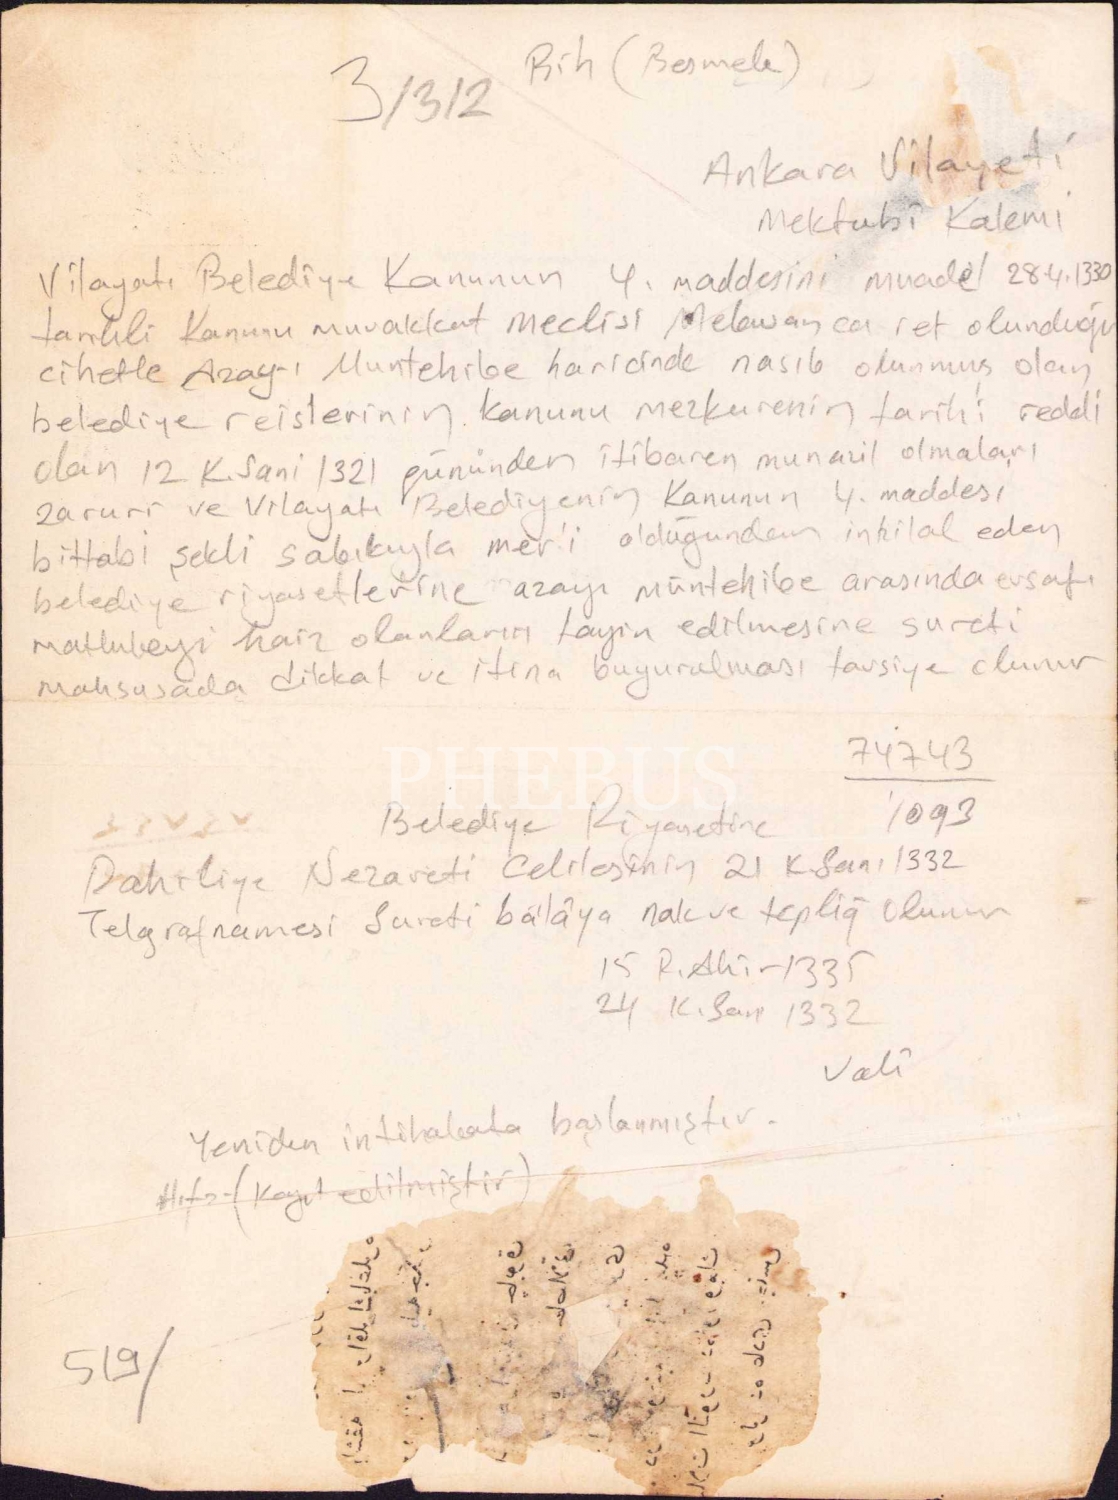 3/312
Bih (Besmele)
Ankara Vilayeti
Mektubî Kalemi
Vilayatı Belediye Kanunun 4. maddesini muadél 28.4.1330
tarihli Kanunu muvakkat Meclisi ret olunduğu
cihetle Azay-ı Muntehibe haricinde nasıb olunmuş olan
belediye reislerinin kanunu mezkurenin tarihi reddi
olan 12 K.Sani 1321 gününden itibaren munazil olmaları
zaruri ve Vilayatı Belediyenin Kanunun 4. maddesı
bittabi şekli sabıkıyla mer'i olduğundan inhilal eden
belediye riyasetlerine azayı müntehibe arasında evsafı
matlubeyi haiz olanların tayin edilmesine sureti
mahsusada dikkat ve itina buyurulması tavsiye olunur
74743
1093
PHEBUS
Belediye Riyasetine
Dahiliye Nezareti Celilesinin 21 K.Sani 1332
Telgrafnamesi Sureti bâlâya nak ve tepliğ olunur
15 R.Ahir 1335
24 K.Sani 1332
Vali
Yeniden intihabata başlanmıştır.
Hıfz (Kayıt edilmiştir)
519/